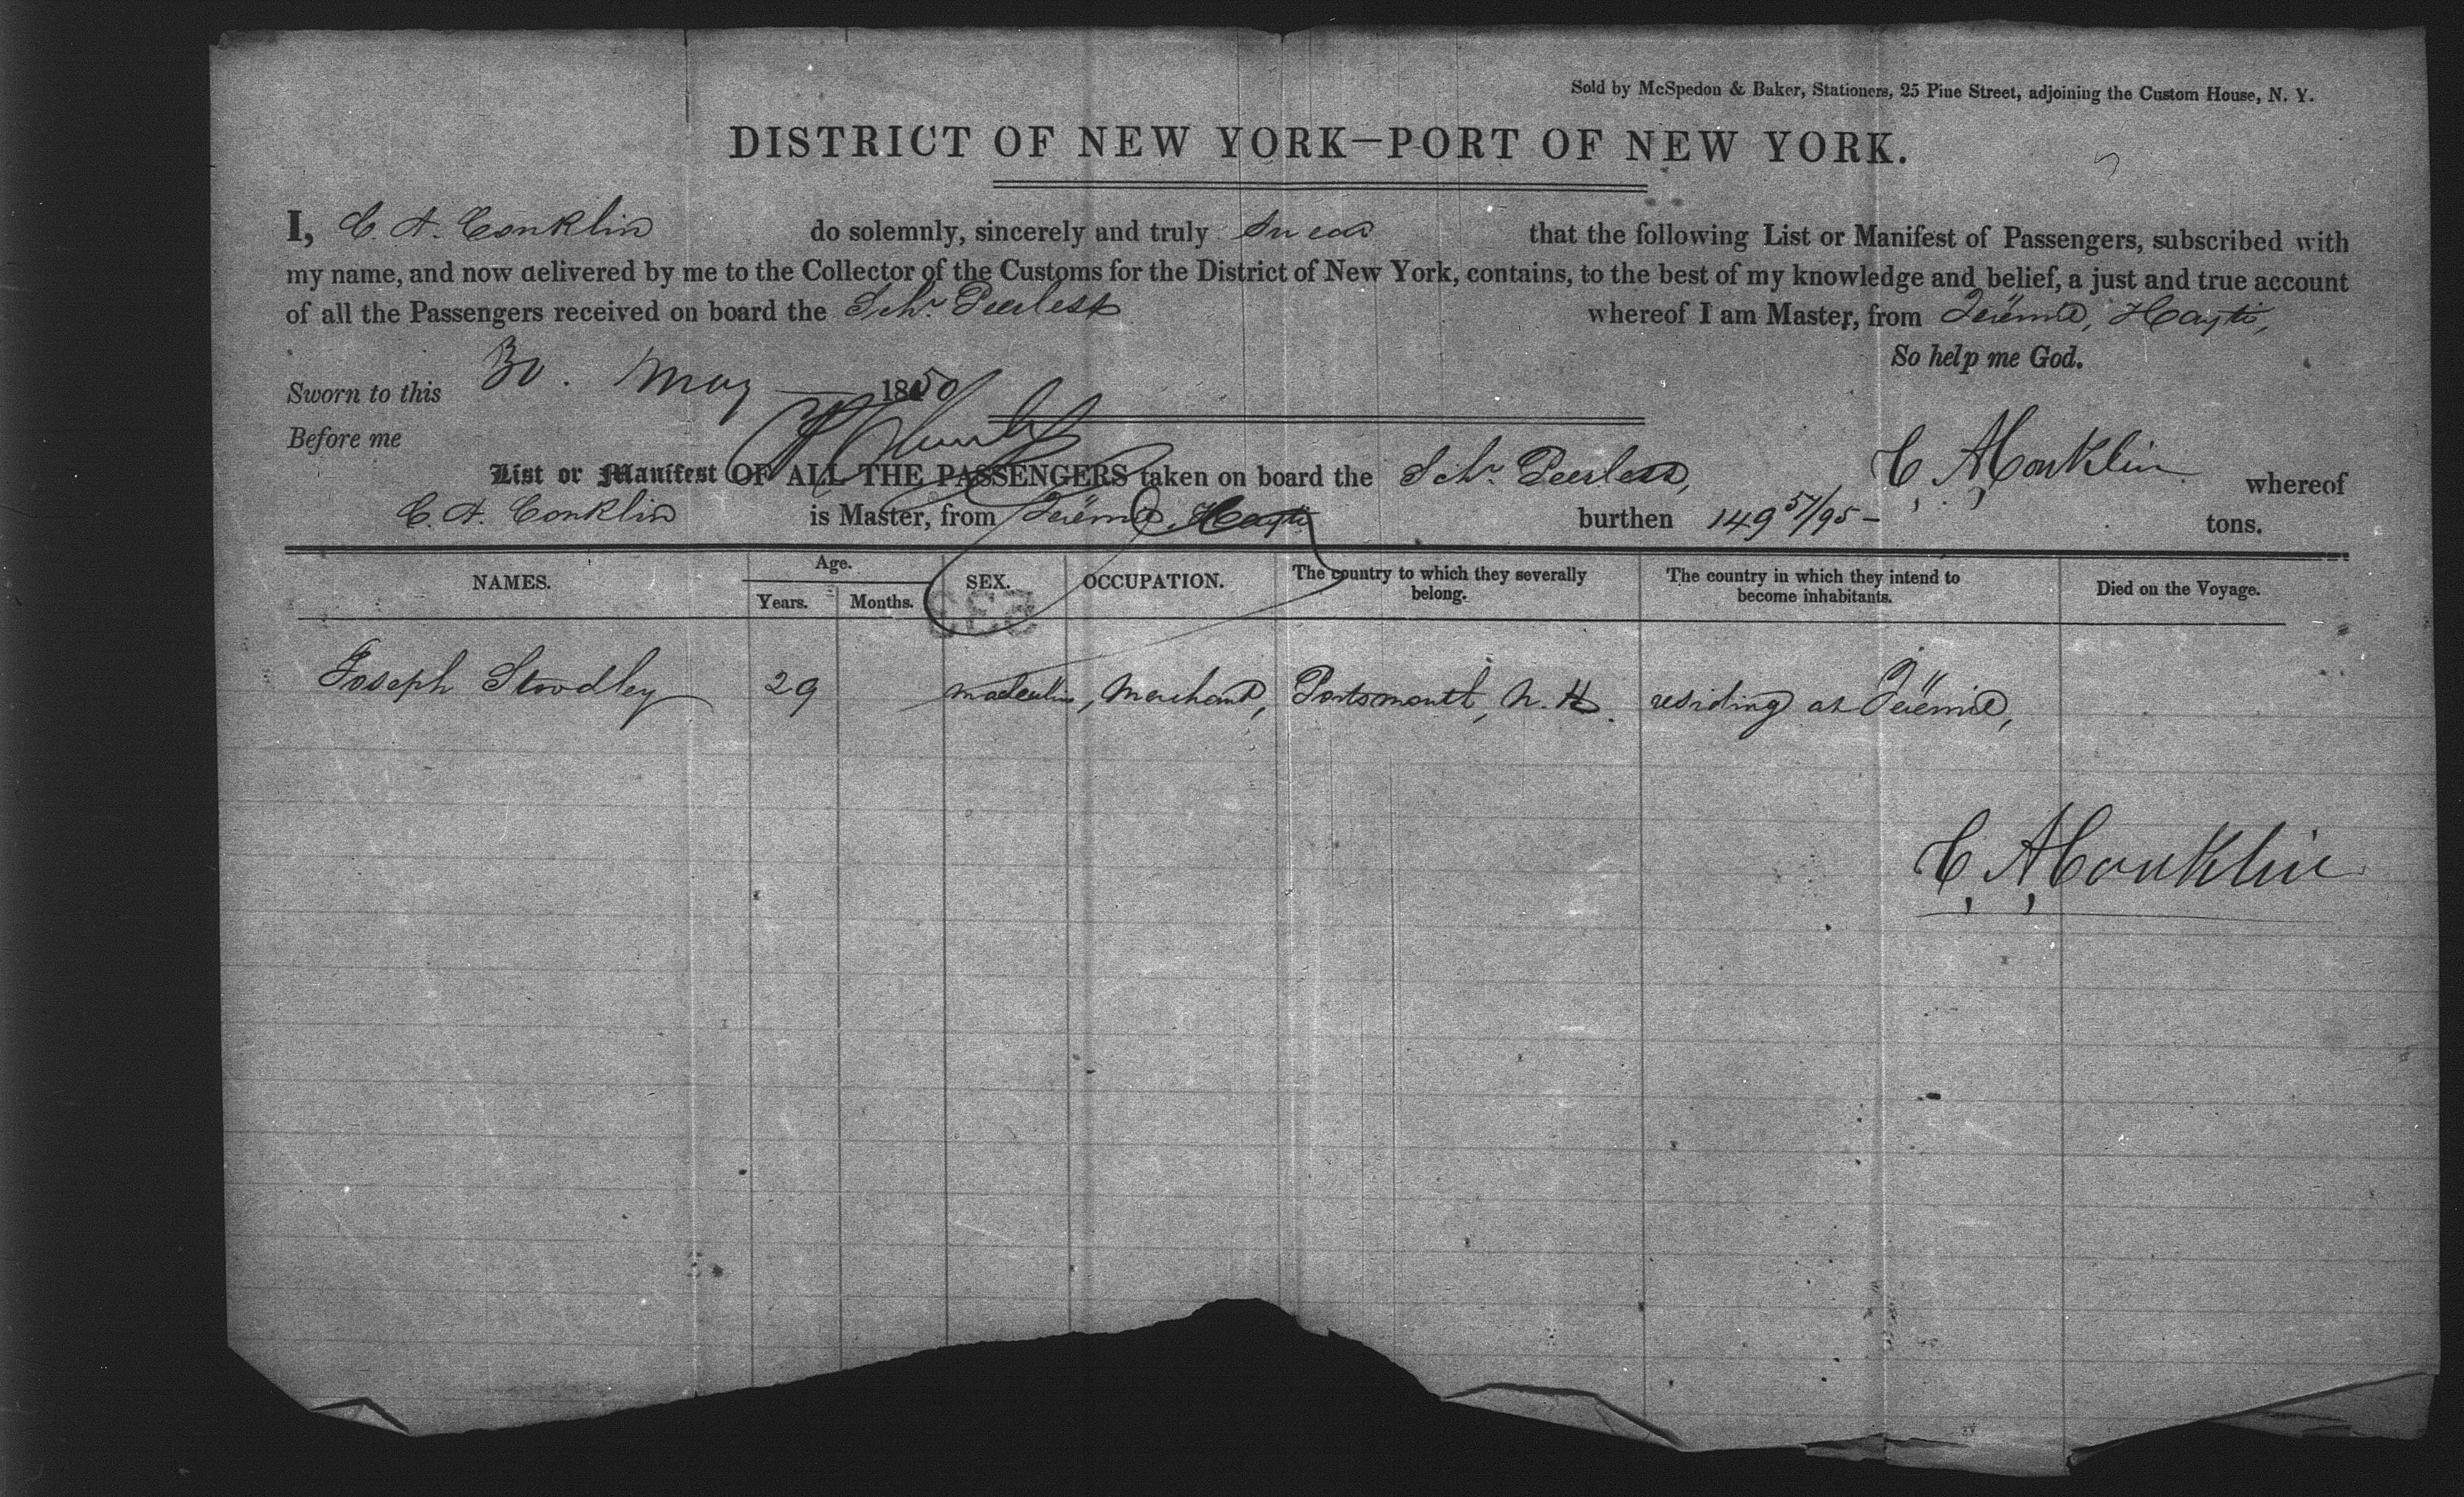 Sold by McSpedon & Baker, Stationers, 25 Pine Street, adjoining the Custom House, N. Y.
DISTRICT OF NEW YORK—PORT OF NEW YORK.
I, C. A. Conklin do solemnly, sincerely and truly swear that the following List or Manifest of Passengers, subscribed with
my name, and now delivered by me to the Collector of the Customs for the District of New York, contains, to the best of my knowledge and belief, a just and true account
of all the Passengers received on board the Schr. Peerless whereof I am Master, from Jérémie, Hayti,
So help me God.
Sworn to this 30. May 1850
Before me
C. A. Conklin
List or Manifest OF ALL THE PASSENGERS taken on board the Schr. Peerless, whereof
C. A. Conklin is Master, from Jérémie, Hayti burthen 149 57/95 – tons.
NAMES. Age. Years. Months. SEX. OCCUPATION. The country to which they severally belong. The country in which they intend to become inhabitants. Died on the Voyage.
Joseph Stoodley 29 masculin, Merchant, Portsmouth, N. H. residing at Jérémie,
C. A. Conklin